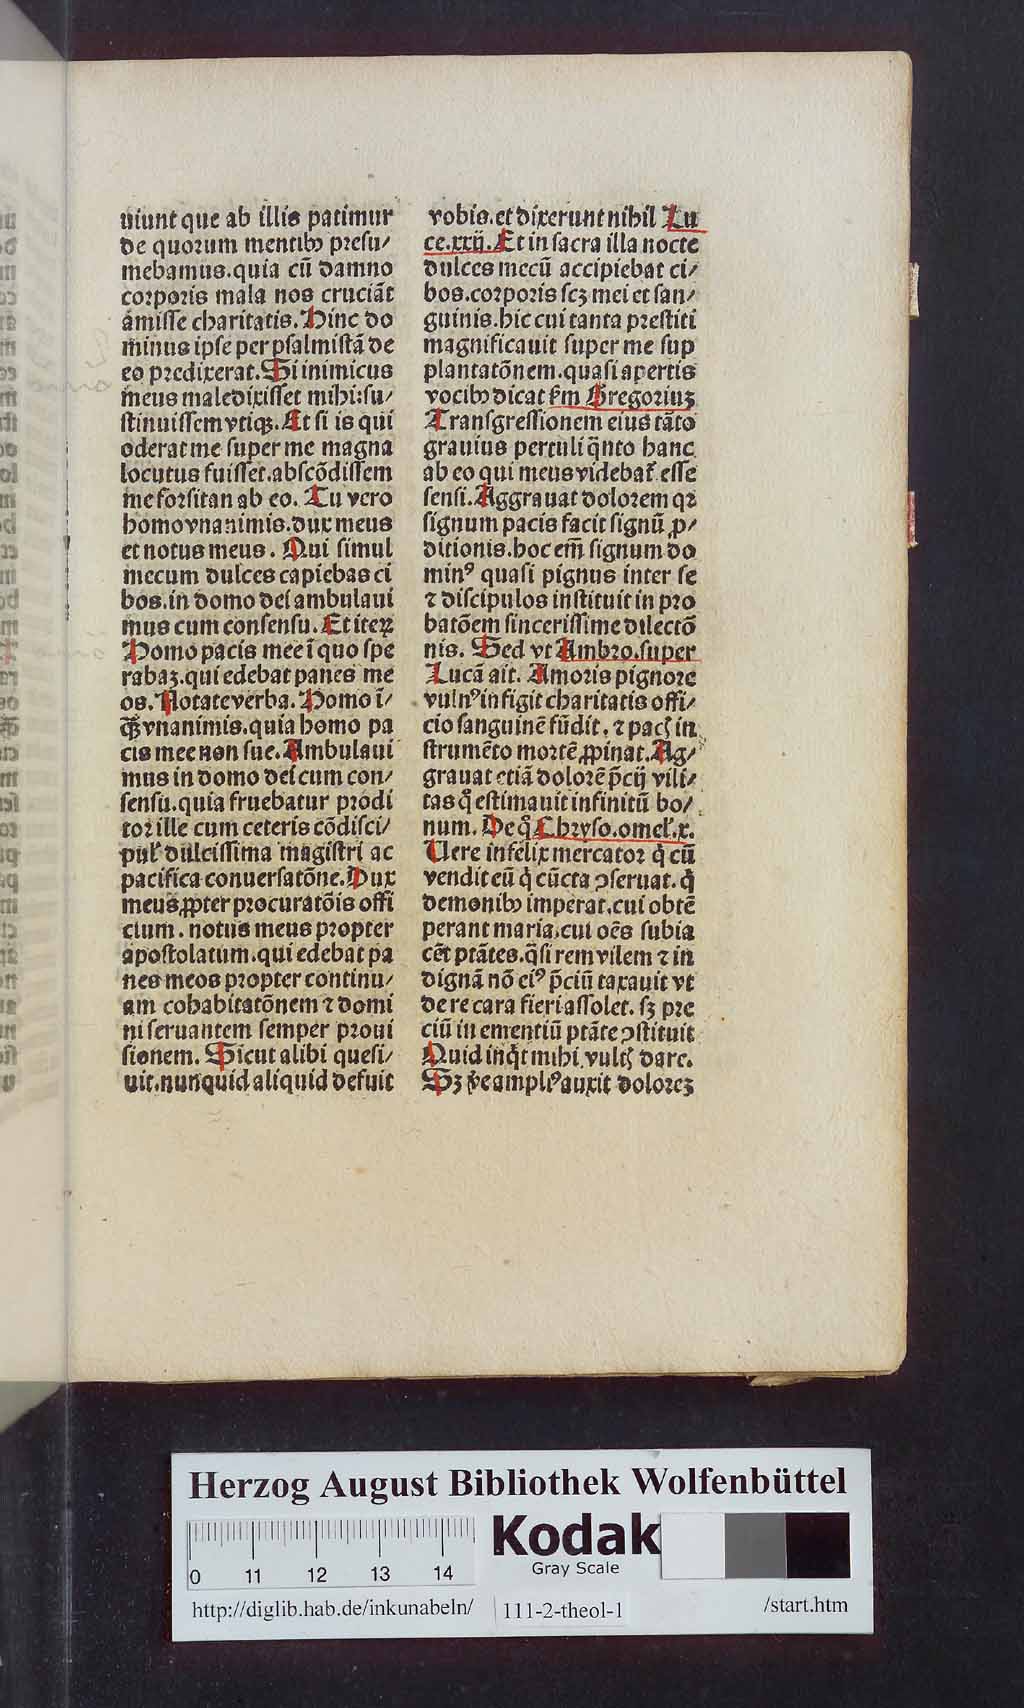 uiunt que ab illis patimur
de quorum mentibꝫ presu/
mebamus.quia cū damno
corporis mala nos cruciāt
amisse charitatis. Hinc do
minus ipse per psalmistā de
eo predixerat. Si inimicus
meus maledixisset mihi:su/
stinuissem vtiqꝫ. Et si is qui
oderat me super me magna
locutus fuisset.abscōdissem
me forsitan ab eo. Tu vero
homo vnanimis.dux meus
et notus meus. Qui simul
mecum dulces capiebas ci
bos.in domo dei ambulaui
mus cum consensu. Et iteꝝ
Homo pacis mee ī quo spe
rabaꝫ.qui edebat panes me
os. Notate verba. Homo ī/
qͥt vnanimis.quia homo pa
cis mee non sue. Ambulaui
mus in domo dei cum con/
sensu.quia fruebatur prodi
tor ille cum ceteris cōdisci/
pul' dulcissima magistri ac
pacifica conuersatōne. Dux
meus ꝓpter procuratōis offi
cium. notus meus propter
apostolatum.qui edebat pa
nes meos propter continu/
am cohabitatōnem ⁊ domi
ni seruantem semper proui
sionem. Sicut alibi quesi/
uit.nunquid aliquid defuit
vobis.et dixerunt nihil Lu
ce.xxij. Et in sacra illa nocte
dulces mecū accipiebat ci/
bos.corporis scꝫ mei et san/
guinis.hic cui tanta prestiti
magnificauit super me sup
plantatōnem.quasi apertis
vocibꝫ dicat ẜm Gregoriuꝫ
Transgressionem eius tāto
grauius pertuli q̄nto hanc
ab eo qui meus videbat᷑ esse
sensi. Aggrauat dolorem qꝛ
signum pacis facit signū ꝓ/
ditionis.hoc em̄ signum do
minꝰ quasi pignus inter se
⁊ discipulos instituit in pro
batōem sincerissime dilectō
nis. Sed vt Ambro.super
Lucā ait. Amoris pignore
vulnꝰ infigit charitatis offi/
cio sanguinē fūdit. ⁊ pacꝭ in
strumēto mortē ꝓpinat. Ag/
grauat etiā dolorē p̄cij vili/
tas qͦ estimauit infinitū bo/
num. De qͦ Chryso.omel'.x.
Uere infelix mercator qͥ cū
vendit eū qͥ cūcta ꝯseruat. qͥ
demonibꝫ imperat.cui obtē
perant maria.cui oēs subia
cēt ptātes.q̄si rem vilem ⁊ in
dignā nō eiꝰ p̄ciū taxauit vt
de re cara fieri assolet. sꝫ pre
ciū in ementiū ptāte ꝯstituit
Quid inqͥt mihi vultꝭ dare.
Sꝫ amplꝰ auxit doloreꝫ
Herzog August Bibliothek Wolfenbüttel
0 11 12 13 14
Kodak
Gray Scale
http://diglib.hab.de/inkunabeln/ 111-2-theol-1 /start.htm